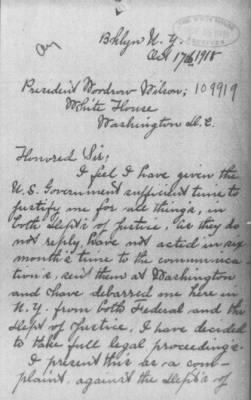 Bklyn N. Y.
Oct 17th 1918
President Woodrow Wilson; 109919
White House
Washington D. C.
Honored Sir;
I feel I have given the
U. S. Government sufficient time to
justify me for all things, in
both Dept's of Justice. As they do
not reply, have not acted in six
month's time to the communica-
tion's, sent them at Washington
and have debarred me here in
N. Y. from both Federal and the
Dept of Justice, I have decided
to take full legal proceedings.
I present this as a com-
plaint against the Dept's of